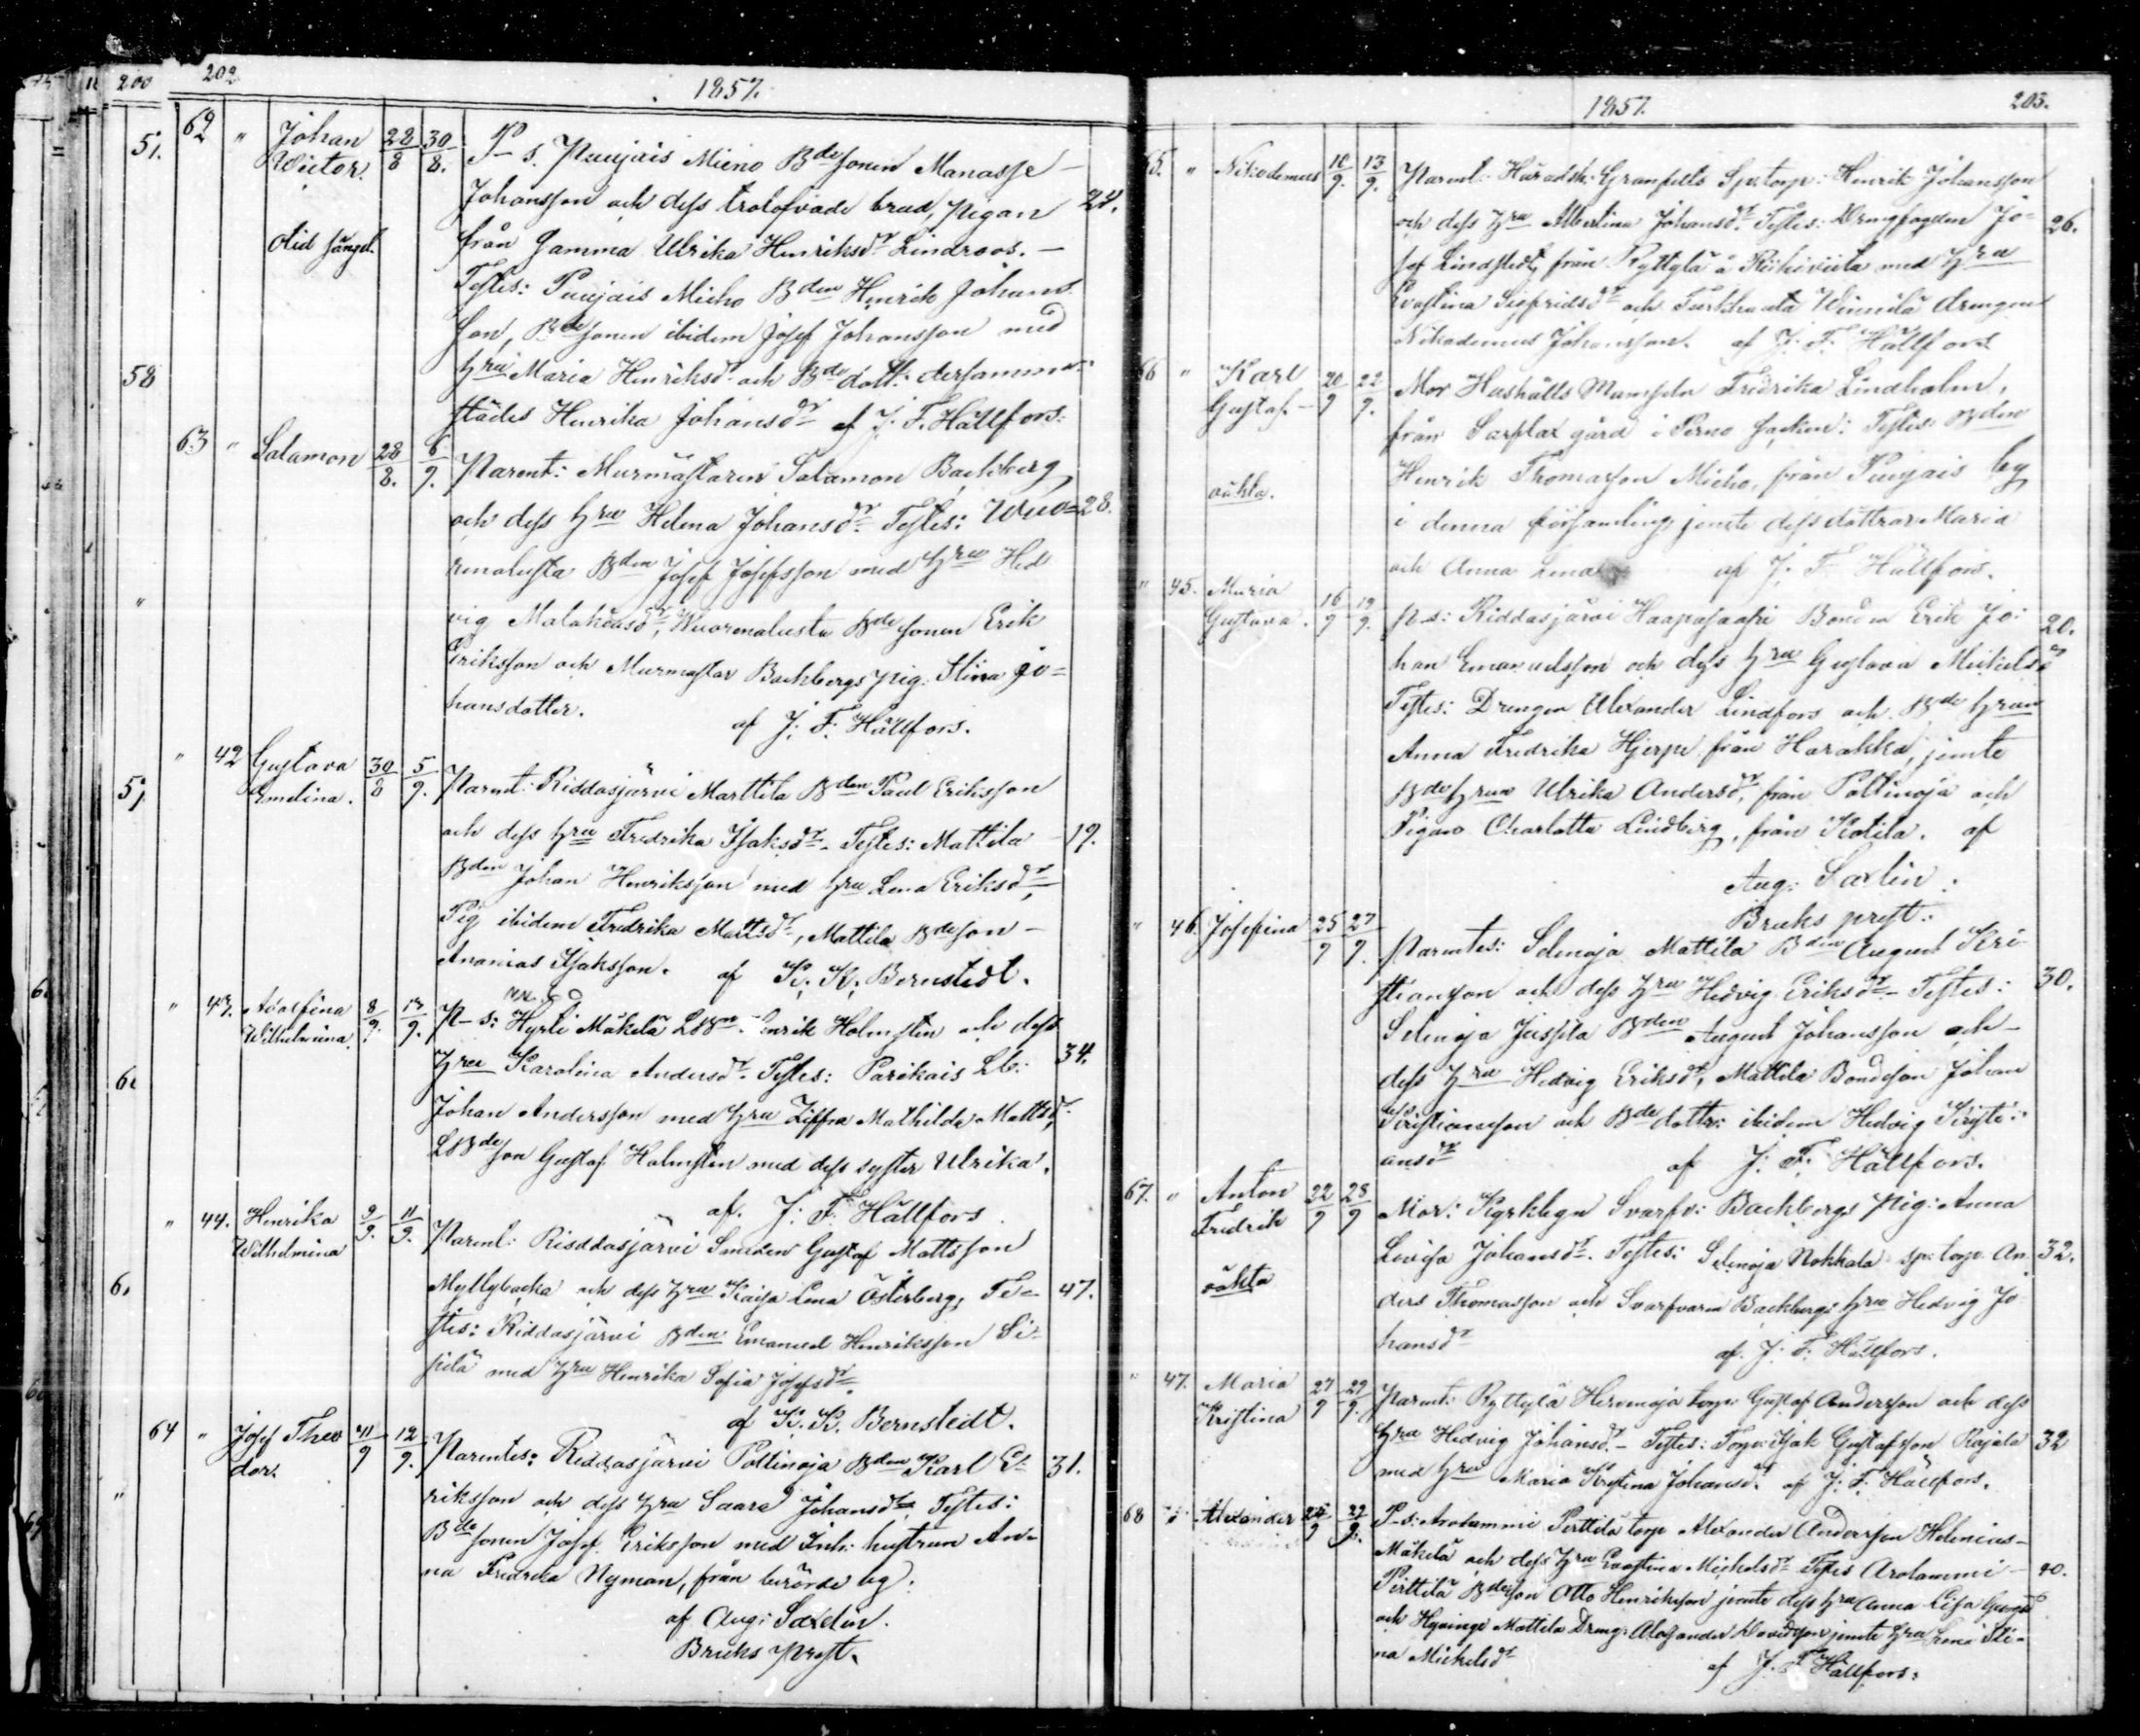 200
202
1857.
51.
62 " Johan 28/8 30/8. P-s. Puujais Mieho Bdesonen Manasse
Wictor.
Johansson och dess trolofvade brud, Pigan 24.
olid sängel.
från Jamma Ulrika Henriksdr Lindroos. –
Testes: Puujais Mieho Bden Henrik Johans
son, Bdesonen ibidem Josef Johansson med
58
hru Maria Henriksdr och Bde dott: dersamma-
städes Henrika Johansdr af J. F. Hällfors.
63 " Salamon 28/8. 6/9. Parent: Murmästaren Salamon Backberg
och dess hru Helena Johansdr Testes: Wuo= 28.
renalusta Bden Josef Josefsson med hru Hed
"
vig Malakiasdr, Wuorenalusta Bdesonen Erik
Eriksson och Murmästar Backbergs pig: Stina Jo=
hansdotter. af J. F. Hällfors.
" 42 Gustava 30/8 5/9. Parent: Riddasjärvi Marttila Bden Paul Eriksson
Emelina.
och dess hru Fredrika Isaksdr – Testes: Mattila 19.
Bden Johan Henriksson med hru Lena Eriksdr,
Pig ibidem Fredrika Mattsdr, Mattila Bdeson –
Ananias Isaksson. af K. K. Bernstedt.
" 43. Adolfina 8/9. 13/9. P-s: Hyrli Mäkelä LBn Henrik Holmsten och dess
Wilhelmina
hru Karolina Andersdr. Testes: Parikais Lb: 34.
Johan Andersson med hru Ziffra Mathilda Mattsdr,
LBdeson Gustaf Holmsten med dess syster Ulrika.
af. J. F. Hällfors
" 44. Henrika 9/9. 11/9. Parent: Riddasjärvi Smeden Gustaf Mattsson
Wilhelmina
Myllybacka och dess hru Kaisa Lena Österberg, Te= 47.
stes: Riddasjärvi Bden Emanuel Henriksson Si-
pilä med hru Henrika Sofia Josefsdr.
af K. K. Bernstedt.
64 " Josef Theo 11/9 12/9. Parentes: Riddasjärvi Pollinoja Bden Karl E- 31.
dor.
riksson och dess hru Saara Johansdr Testes:
Bdesonen Josef Eriksson med Inh: hustrun An-
na Fredrika Nyman, från berörde by:
af Aug: Saxlin.
Bruks prest.
1857.
203.
65. " Nikodemus 10/9. 13/9. Parent: Häradsh: Granfelts Sp:torp: Henrik Johansson
och dess hru Albertina Johansdr. Testes: Drengfogden Jo- 26.
sef Lindstedt, från Ryttylä å Riihiviita med hru
Evastina Sigfridsdr och Turkhauta Winnilä drengen
Nikodemus Johansson. af J. F. Hällfors
66 " Karl 20/9 22/9. Mor Hushålls Mamseln Fredrika Lindholm,
Gustaf.
från Sarflax gård i Perno Socken: Testes: Bden
Henrik Thomasson Mieho, från Puujais by
oäkta.
i denna församling, jemte dess döttrar Maria
och Anna Lena af J. F. Hällfors.
" 45. Maria 16/9 19/9. P-s: Riddasjärvi Haapasaari Bonden Erik Jo- 20.
Gustava.
han Emanuelsson och dess hru Gustava Michelsdr
Testes: Drengen Alexander Lindfors och Bde hrun
Anna Fredrika Hjerpe från Harakka, jemte
Bde hrun Ulrika Andersdr, från Pollinoja och
Pigan Charlotta Lindberg, från Kotila. af
Aug: Saxlin:
Bruks prest:
" 46. Josefina 25/9 27/9. Parentes: Selinoja Mattila Bden August Kri
stiansson och dess hru Hedvig Eriksdr – Testes: 30.
Selinoja Jussila Bden August Johansson och –
dess hru Hedvig Eriksdr, Mattila Bondeson Johan
Kristiansson och Bde dottr: ibidem Hedvig Kristi-
ansdr af J. F. Hällfors.
67. " Anton 22/9 28/9 Mor: Kyrkbyn Svarfv: Backbergs Pig: Anna
Fredrik
Lovisa Johansdr. Testes: Selinoja Nokkala sp: torp: An 32.
oäkta
ders Thomasson och Svarfvaren Backbergs hru Hedvig Jo
hansdr af. J. F. Hällfors.
" 47. Maria 27/9 29/9. Parent: Ryttylä Hirvenoja torp: Gustaf Andersson och dess
Kristina
hru Hedvig Johansdr. – Testes: Torp: Isak Gustafsson Rajala 32
med hru Maria Kristina Johansdr. af J. F. Hällfors.
68 " Alexander 25/9 29/9. P-s: Arolammi Perttilä torp Alexander Andersson Helenius –
Mäkelä och dess hru Evastina Michelsdr Testes Arolammi – 40.
Pirttilä Bdeson Otto Henriksson jemte dess hru Anna Lisa
och Hyvinge Mattila Dreng: Alexander Davidsson jemte hru Lena Sti-
na Michelsdr af J. F. Hällfors: